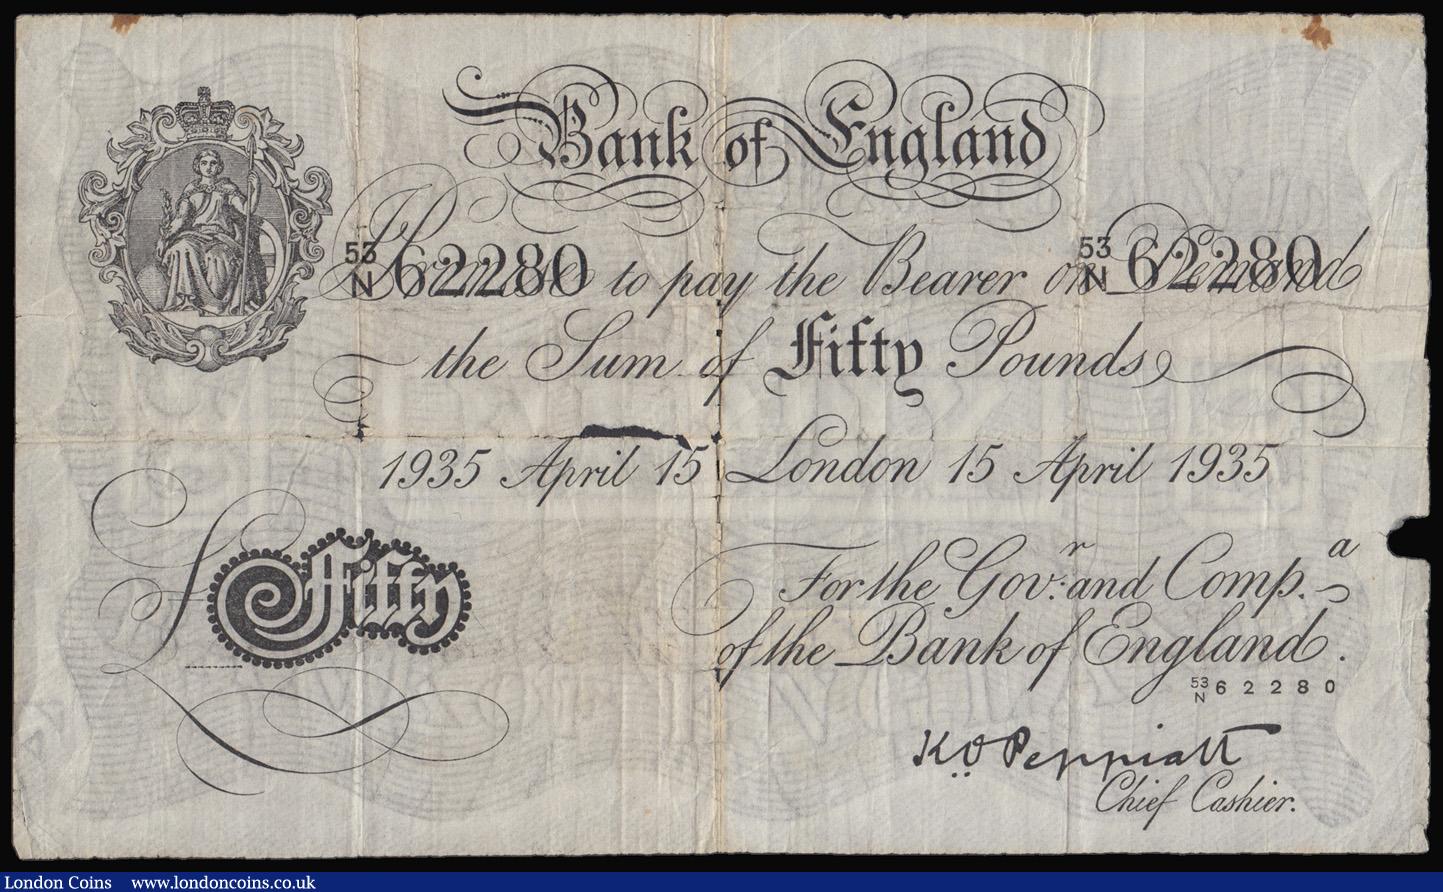 Bank of England
53/N 62280 53/N 62280
I Promise to pay the Bearer on Demand
the Sum of Fifty Pounds
1935 April 15 London 15 April 1935
£ Fifty
For the Govr. and Compa.
of the Bank of England.
53/N 62280
K.O. Peppiatt
Chief Cashier.
London Coins www.londoncoins.co.uk